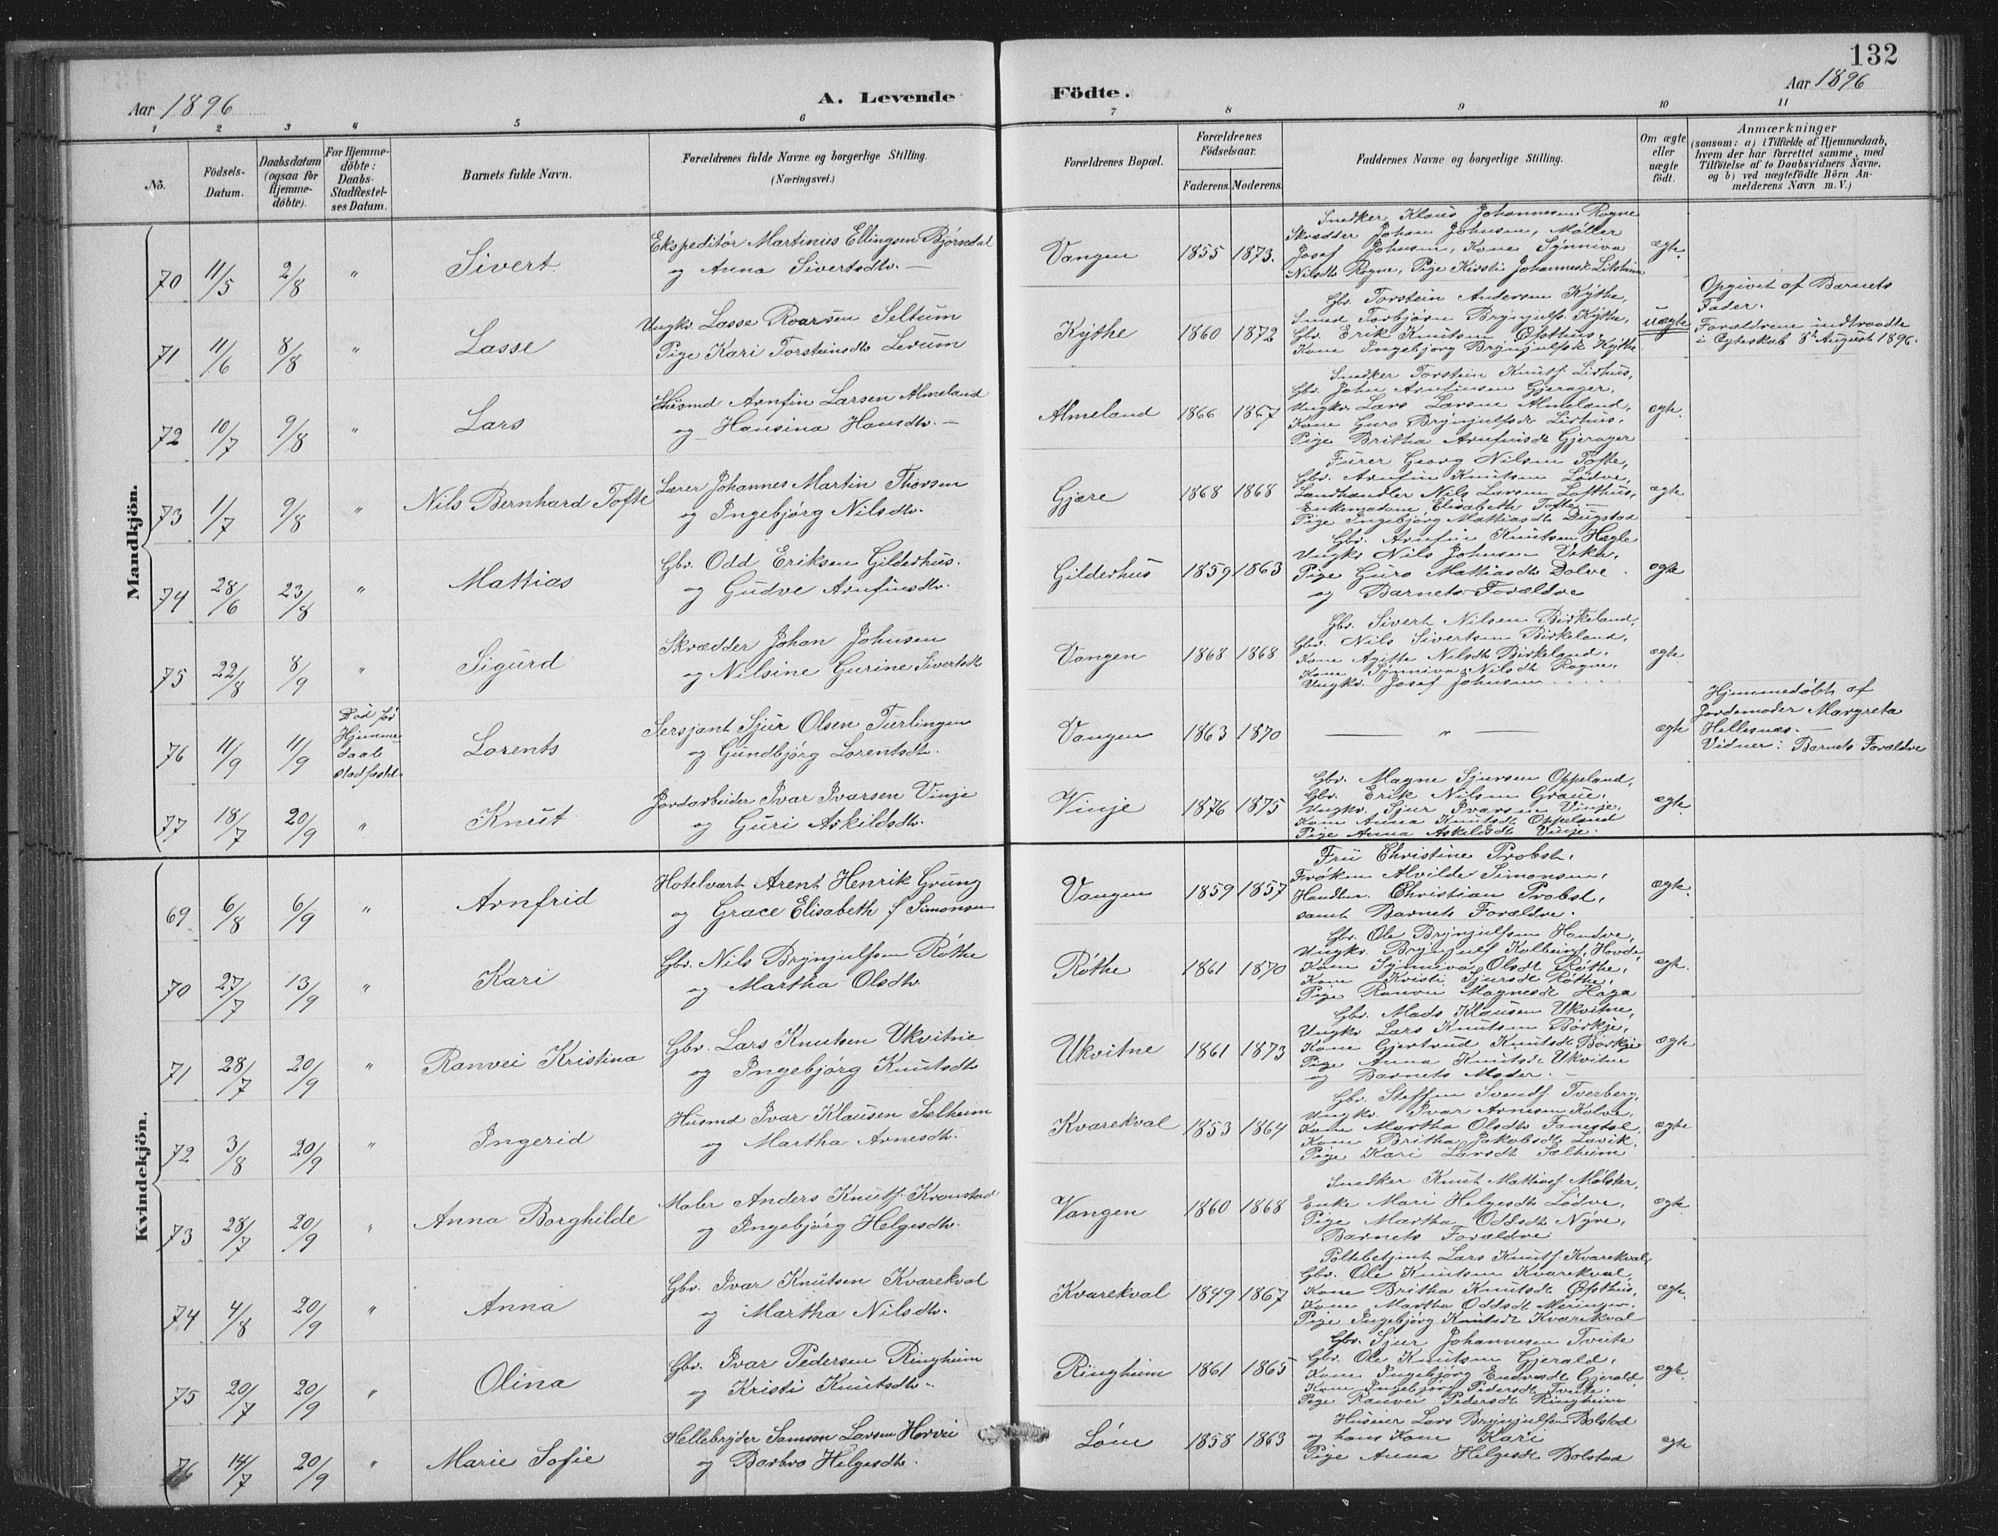 132
Aar 1896
A. Levende Födte.
Aar 1896
1 2 3 4 5 6 7 8 9 10 11
No.
Födsels-Datum.
Daabsdatum (ogsaa for Hjemme-döbte).
For Hjemme-döbte: Daabs-Stadfæstel-ses Datum.
Barnets fulde Navn.
Forældrenes fulde Navne og borgerlige Stilling.
(Næringsvei.)
Forældrenes Bopæl.
Forældrenes Födselsaar.
Faderens. Moderens.
Faddernes Navne og borgerlige Stilling.
Om ægte eller uægte födt.
Anmærkninger
(saasom: a) i Tilfælde af Hjemmedaab, hvem der har forrettet samme, med Tilföielse af to Daabsvidners Navne, og b) ved uægtefödte Börn Anmelderens Navn m. V.)
Mandkjön.
70 11/5 2/8 " Sivert
Ekspeditör Martinus Ellingsen Bjørndal
og Anna Sivertsdtr. —
Vangen 1855 1873.
Snedker Klaus Johannesen Rogne
Skrædder Johan Johnsen, Møller
Josef Johnsen, Kone Synniva
Nilsdtr Rogne, Pige Kirsti Johannesdtr
ægte.
71 11/6 8/8 " Lasse
Ungkr. Lasse Roarsen Seltum
Pige Kari Torsteinsdtr Levum
Kythe 1860 1872
Gbr. Torstein Andersen Kythe,
Smed Torbjörn Brynjulfs. Kythe,
Gbr. Erik Knutsen Ofsthus,
Kone Ingebjörg Brynjulfsdtr Kythe
uægte
Opgivet af Barnets
Fader.
Forældrene indtraadte
i Egteskab 8de August 1896.
72 10/7 9/8 " Lars
Husmd Arnfin Larsen Almeland
og Hansina Hansdtr. —
Almeland 1866 1867
Snedker Torstein Knutf. Lirhus,
Gbr. John Arnfinsen Gjerager,
Ungkr. Lars Larsen Almeland,
Kone Guro Brynjulfsdtr Lirhus,
Pige Britha Arnfinsdtr Gjerager
ægte.
73 11/7 9/8 " Nils Bernhard Tofte
Lærer Johannes Martin Thorsen
og Ingebjörg Nilsdtr.
Gjære 1868 1868
Furer Georg Nilsen Tofte,
Gbr. Arnfin Knutsen Lødve,
Landhandler Nils Larsen Lofthus,
Enkemadam Elisabeth Tofte
Pige Ingebjörg Mattiasdtr Dugstad
ægte
74 28/6 23/8 " Mattias
Gbr. Odd Eriksen Gilderhus.
og Gudve Arnfinsdtr.
Gilderhus 1859 1863
Gbr. Arnfin Knutsen Hægle
Ungkr Nils Johnsen Urka,
Pige Guro Mattiasdtr Dolve
og Barnets Forældre
ægte
75 22/8 8/9 " Sigurd
Skrædder Johan Johnsen
og Nilsine Gurine Sivertsdtr
Vangen 1868 1868
Gbr. Sivert Nilsen Birkeland,
Gbr. Nils Sivertsen Birkeland,
Kone Agitte Nilsdtr Birkeland,
Kone Synniva Nilsdtr Rogne,
Ungkr. Josef Johnsen
ægte
76 11/9 11/9
Död før
Hjemme-
daab
stadfæstet
Lorents
Sersjant Sjur Olsen Tvrlingen
og Gundbjörg Lorentsdtr.
Vangen 1863 1870 — " —
ægte
Hjemmedøbt af
Jordemoder Margreta
Hellesnæs.
Vidner: Barnets Forældre
77 18/7 20/9 " Knut
Jordarbeider Ivar Ivarsen Vinje
og Guri Askildsdtr.
Vinje 1876 1875
Gbr. Magne Sjursen Oppeland,
Gbr. Erik Nilsen Graue,
Ungkr. Sjur Ivarsen Vinje,
Kone Anna Knutsdtr Oppeland
Pige Anna Askildsdtr Vinje.
ægte.
Kvindekjön.
69 6/8 6/9 " Arnfrid
Hotelvært Arent Henrik Grung
og Grace Elisabeth f Simonsen
Vangen 1859 1857
Fru Christine Probst,
Frøken Alvilde Simonsen,
Handlm. Christian Probst,
samt Barnets Forældre.
ægte.
70 27/7 13/9 " Kari
Gbr. Nils Brynjulfsen Röthe
og Martha Olsdtr.
Röthe 1861 1870
Gbr. Ole Brynjulfsen Handve,
Ungkr. Brynjulf Kolbeins. Hovde
Kone Synniva Olsdtr Röthe,
Kone Kristi Sjursdtr Röthe,
Pige Ranvei Magnesdtr Haga
ægte.
71 28/7 20/9 " Ranvei Kristina
Gbr. Lars Knutsen Ukvitne
og Ingebjörg Knutsdtr
Ukvitne 1861 1873
Gbr. Mads Klausen Ukvitne,
Ungkr Lars Knutsen Börkje,
Kone Gjertrud Knutsdtr Börkje
Pige Anna Knutsdtr Ukvitne
og Barnets Moder.
ægte
72 3/8 20/9 " Ingerid
Husmd Ivar Klausen Sælheim
og Martha Arnesdtr.
Kvarekval 1853 1864
Gbr. Steffen Svendf. Tverberg,
Ungkr. Ivar Arnesen Kolve,
Kone Martha Olsdtr Fenestal,
Kone Britha Jakobsdtr Lavik,
Pige Kari Larsdtr Sælheim
ægte
73 28/7 20/9 " Anna Borghilde
Maler Anders Knutf. Kronstad
og Ingebjörg Helgesdtr.
Vangen 1860 1868
Snedker Knut Mattiasf Mølster,
Enke Mari Helgesdtr Lødve,
Pige Martha Oddsdtr Nyre,
Barnets Forældre
ægte.
74 4/8 20/9 " Anna
Gbr. Ivar Knutsen Kvarekval
og Martha Nilsdtr.
Kvarekval 1849 1867
Politibetjent Lars Knutf. Kvarekval,
Gbr. Ole Knutsen Kvarekval,
Kone Britha Knutsdtr Ofsthus,
Kone Martha Oddsdtr Meringen
Pige Ingebjörg Knutsdtr Kvarekval
ægte.
75 20/7 20/9 " Olina
Gbr. Ivar Pedersen Ringheim
og Kristi Knutsdtr.
Ringheim 1861 1865
Gbr. Sjur Johannesen Tveite
Gbr. Ole Knutsen Gjerald,
Kone Ingebjörg Endresdtr Gjerald,
Kone Ingebjörg Pedersdtr Tveite,
Pige Ranvei Pedersdtr Ringheim
ægte.
76 14/7 20/9 " Marie Sofie
Hellebryder Samson Larsen Horvei
og Barbro Helgesdtr.
Løne 1858 1863
Huseier Lars Brynjulfsen Bolstad
og hans Kone Kari
Pige Anna Helgesdtr Bolstad
ægte